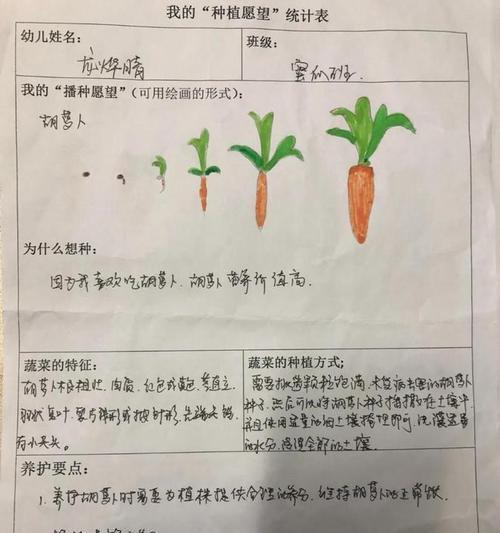 我的“种植愿望”统计表
幼儿姓名：
龙烨晴
班级：
蜜瓜班.
我的“播种愿望”（可用绘画的形式）：
胡萝卜
为什么想种：
因为我喜欢吃胡萝卜.胡萝卜营养价值高.
蔬菜的特征：
胡萝卜根粗壮.肉质.红色或黄色.茎直立.
羽状复叶.
有小尖头.
蔬菜的种植方式；
需要挑选颗粒饱满.未受病虫害的胡萝卜
种子.然后可以将胡萝卜种子播撒在土壤中
并且使用适量的细土壤掩埋即可.浇灌适量
的水分.浸湿全部的土壤
养护要点：
1.养护胡萝卜时需要为植株提供合理的养分.维持胡萝卜的正常